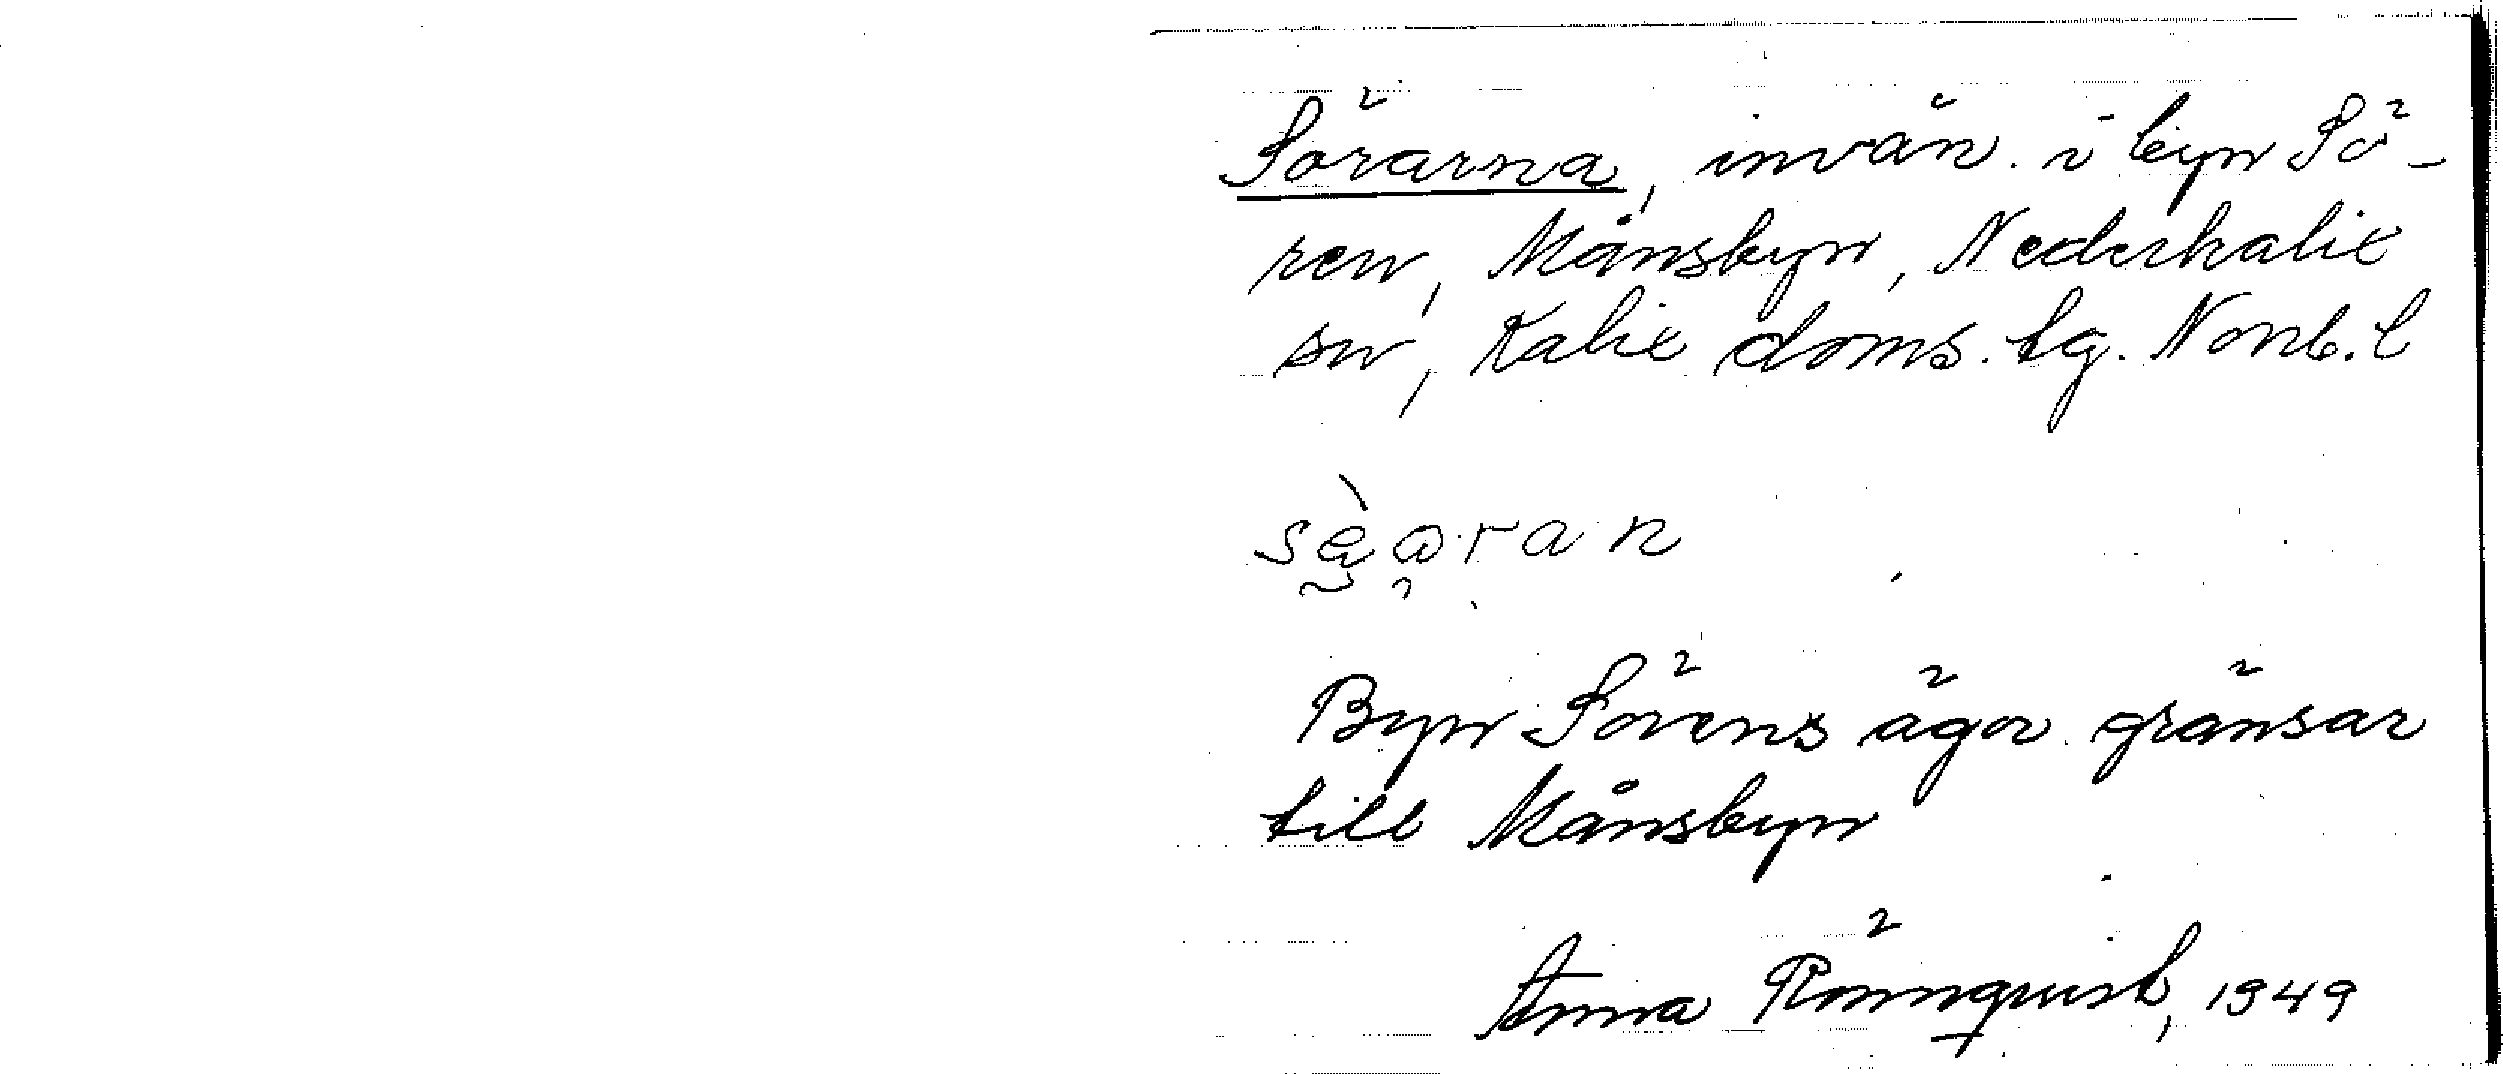 Sörarna, invån. i byn Sö-
ren, Månsbyn, Nederkalix
sn, Kalix doms. tg. Norrb. l
Byn Sörens ägor gränsar
till Månsbyn
Anna Rönnqvist, 1949